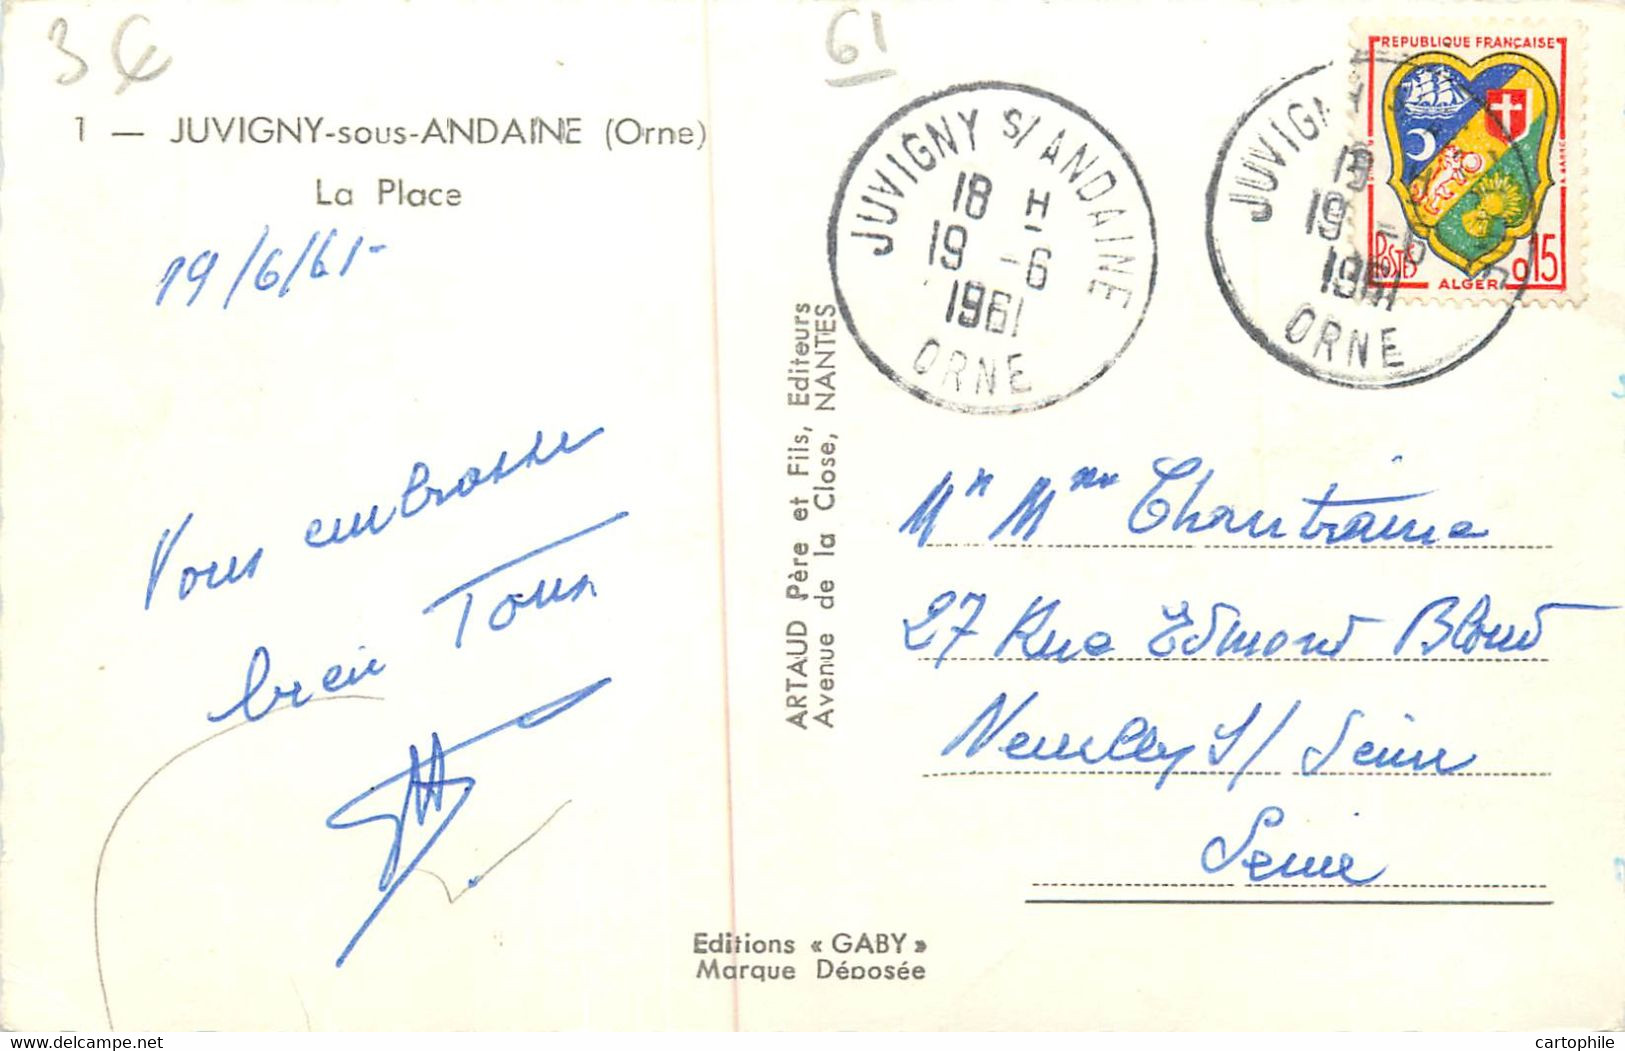 3 €
61
1 — JUVIGNY-sous-ANDAINE (Orne)
La Place
19/6/61-
Vous embrasse
bien Tous
JUVIGNY S/ ANDAINE
18 H
19 -6
1961
ORNE
JUVIGN
19
19 -6
1961
ORNE
REPUBLIQUE FRANÇAISE
POSTES
0,15
ALGER
ARTAUD Père et Fils, Editeurs
Avenue de la Close, NANTES
Mr Mme Chantraine
27 Rue Edmond Bloud
Neuilly S/ Seine
Seine
Editions « GABY »
Marque Déposée
www.delcampe.net
cartophile